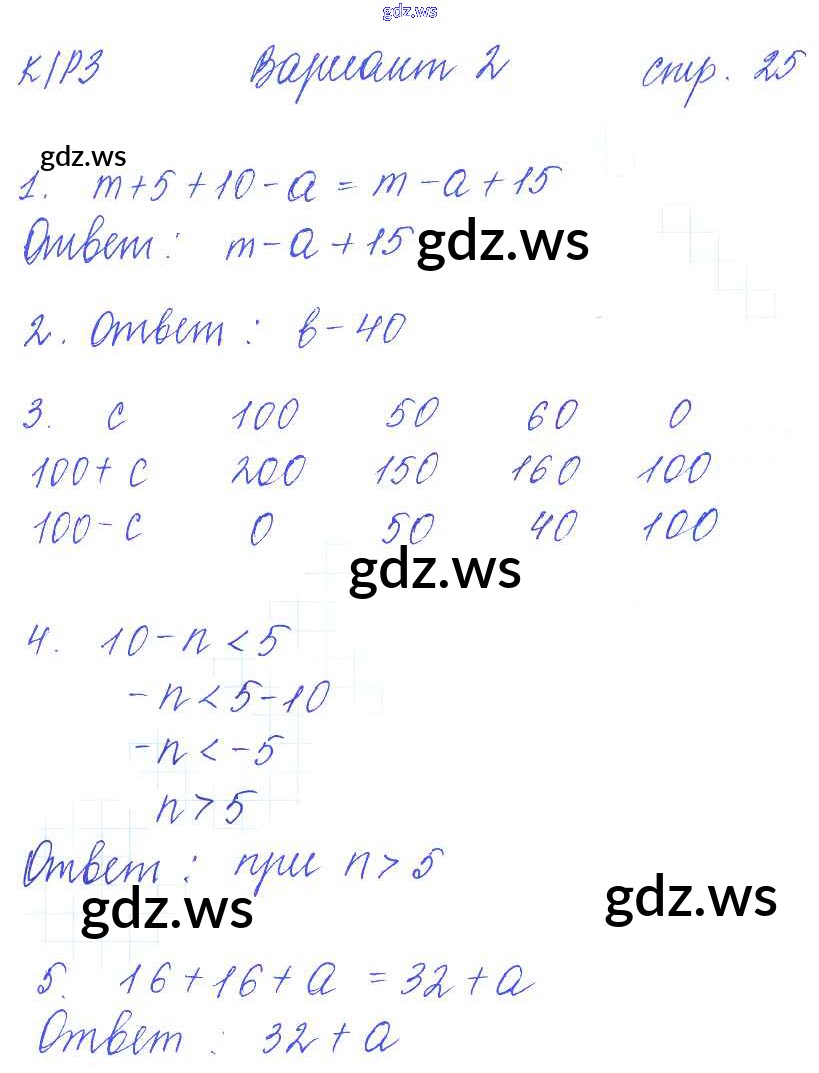 gdz.ws
К/Р3 Вариант 2 стр. 25
gdz.ws
1. m+5+10-a = m-a+15
Ответ: m-a+15 gdz.ws
2. Ответ: в-40
3. c 100 50 60 0
100+c 200 150 160 100
100-c 0 50 40 100
gdz.ws
4. 10-n<5
-n<5-10
-n<-5
n>5
Ответ: при n>5
gdz.ws gdz.ws
5. 16+16+a = 32+a
Ответ: 32+a